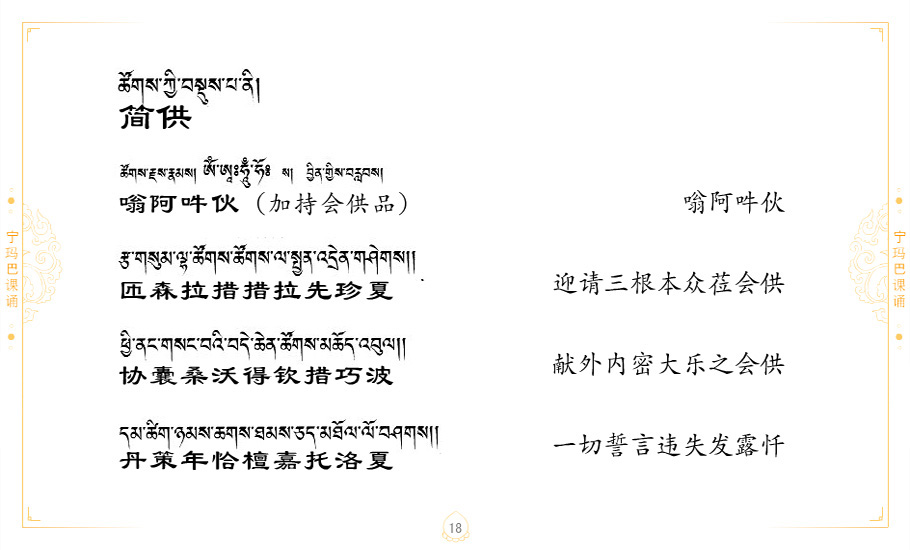 ཚོགས་ཀྱི་བསྡུས་པ་ནི།
简供
ཚོགས་རྫས་རྣམས། ཨོཾ་ཨཱཿཧཱུྃ་ཧོཿ ས། བྱིན་གྱིས་བརླབས།
嗡阿吽伙（加持会供品） 嗡阿吽伙
རྩ་གསུམ་ལྷ་ཚོགས་ཚོགས་ལ་སྤྱན་འདྲེན་གཤེགས།།
匝森拉措措拉先珍夏 迎请三根本众莅会供
ཕྱི་ནང་གསང་བའི་བདེ་ཆེན་ཚོགས་མཆོད་འབུལ།།
协囊桑沃得钦措巧波 献外内密大乐之会供
དམ་ཚིག་ཉམས་ཆགས་ཐམས་ཅད་མཐོལ་ལོ་བཤགས།།
丹策年恰檀嘉托洛夏 一切誓言违失发露忏
宁玛巴课诵
宁玛巴课诵
18